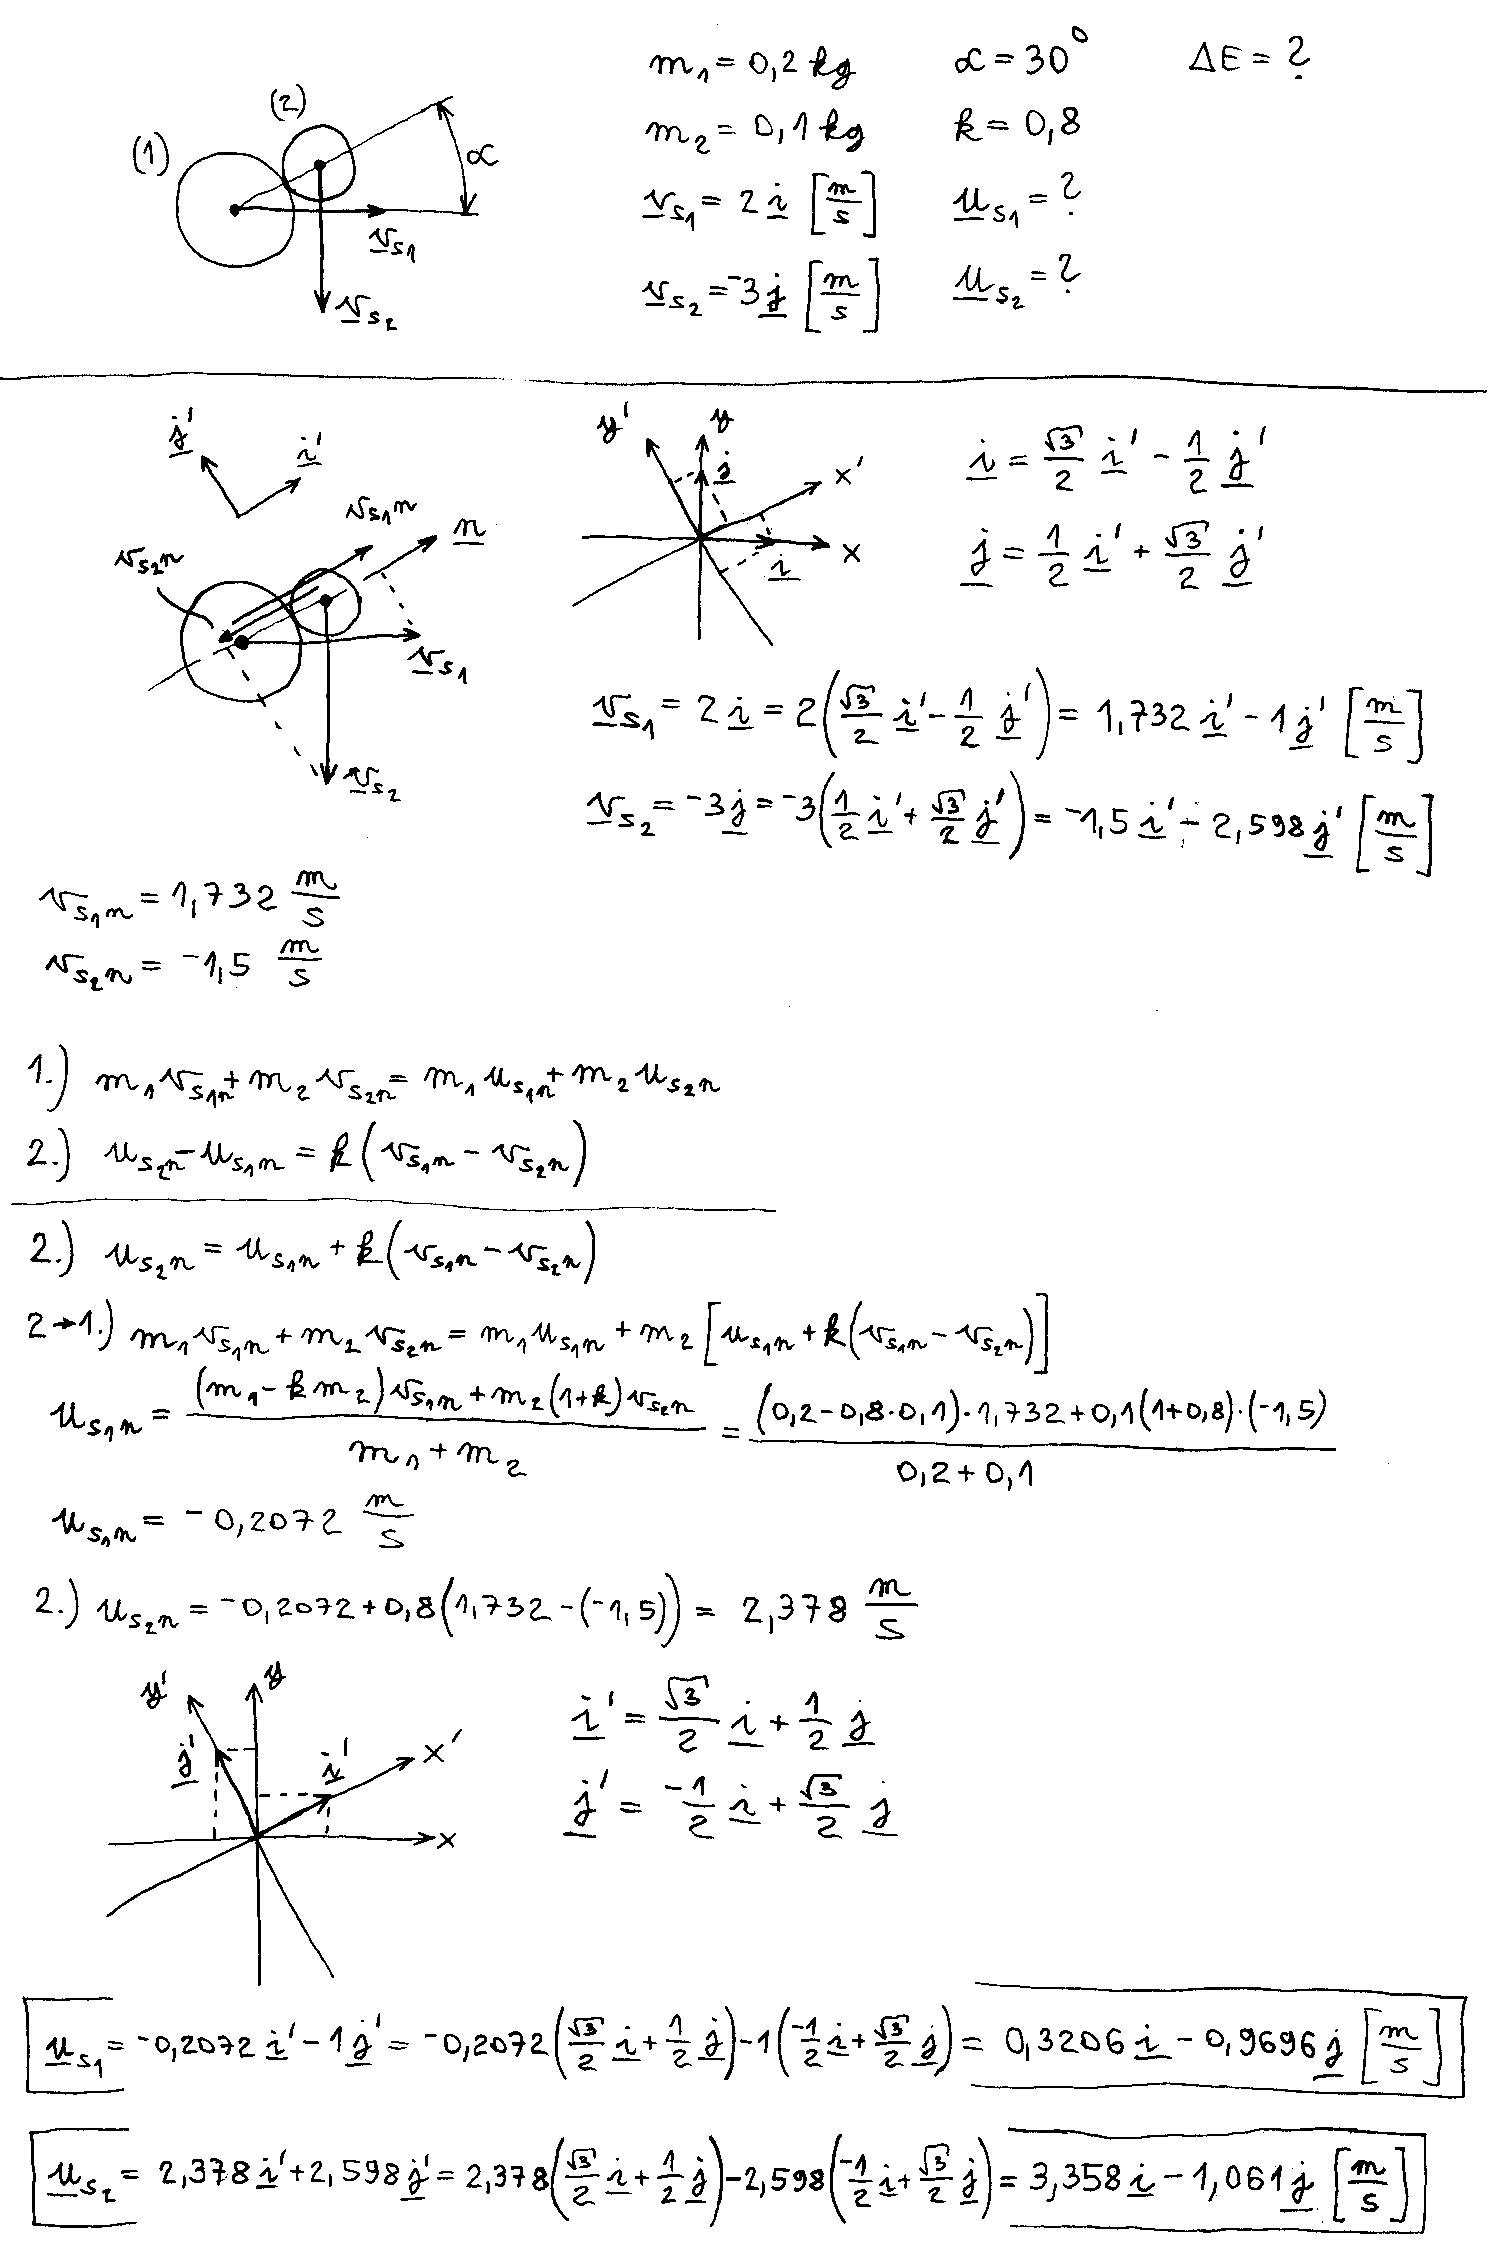 m₁ = 0,2 kg α = 30° ΔE = ?
m₂ = 0,1 kg k = 0,8
v_S₁ = 2 i [m/s] u_S₁ = ?
v_S₂ = -3 j [m/s] u_S₂ = ?
(1) (2) α
v_S₁
v_S₂
j' i'
v_S₁n n
v_S₂n
v_S₁
v_S₂
y' y
j x'
i x
i = √3/2 i' - 1/2 j'
j = 1/2 i' + √3/2 j'
v_S₁ = 2 i = 2(√3/2 i' - 1/2 j') = 1,732 i' - 1 j' [m/s]
v_S₂ = -3 j = -3(1/2 i' + √3/2 j') = -1,5 i' - 2,598 j' [m/s]
v_S₁n = 1,732 m/s
v_S₂n = -1,5 m/s
1.) m₁ v_S₁n + m₂ v_S₂n = m₁ u_S₁n + m₂ u_S₂n
2.) u_S₂n - u_S₁n = k(v_S₁n - v_S₂n)
2.) u_S₂n = u_S₁n + k(v_S₁n - v_S₂n)
2→1.) m₁ v_S₁n + m₂ v_S₂n = m₁ u_S₁n + m₂ [u_S₁n + k(v_S₁n - v_S₂n)]
u_S₁n = (m₁ - k m₂) v_S₁n + m₂ (1+k) v_S₂n / m₁ + m₂ = (0,2 - 0,8·0,1)·1,732 + 0,1(1+0,8)·(-1,5) / 0,2 + 0,1
u_S₁n = -0,2072 m/s
2.) u_S₂n = -0,2072 + 0,8(1,732 - (-1,5)) = 2,378 m/s
y' y
j' i' x'
x
i' = √3/2 i + 1/2 j
j' = -1/2 i + √3/2 j
u_S₁ = -0,2072 i' - 1 j' = -0,2072(√3/2 i + 1/2 j) - 1(-1/2 i + √3/2 j) = 0,3206 i - 0,9696 j [m/s]
u_S₂ = 2,378 i' + 2,598 j' = 2,378(√3/2 i + 1/2 j) - 2,598(-1/2 i + √3/2 j) = 3,358 i - 1,061 j [m/s]